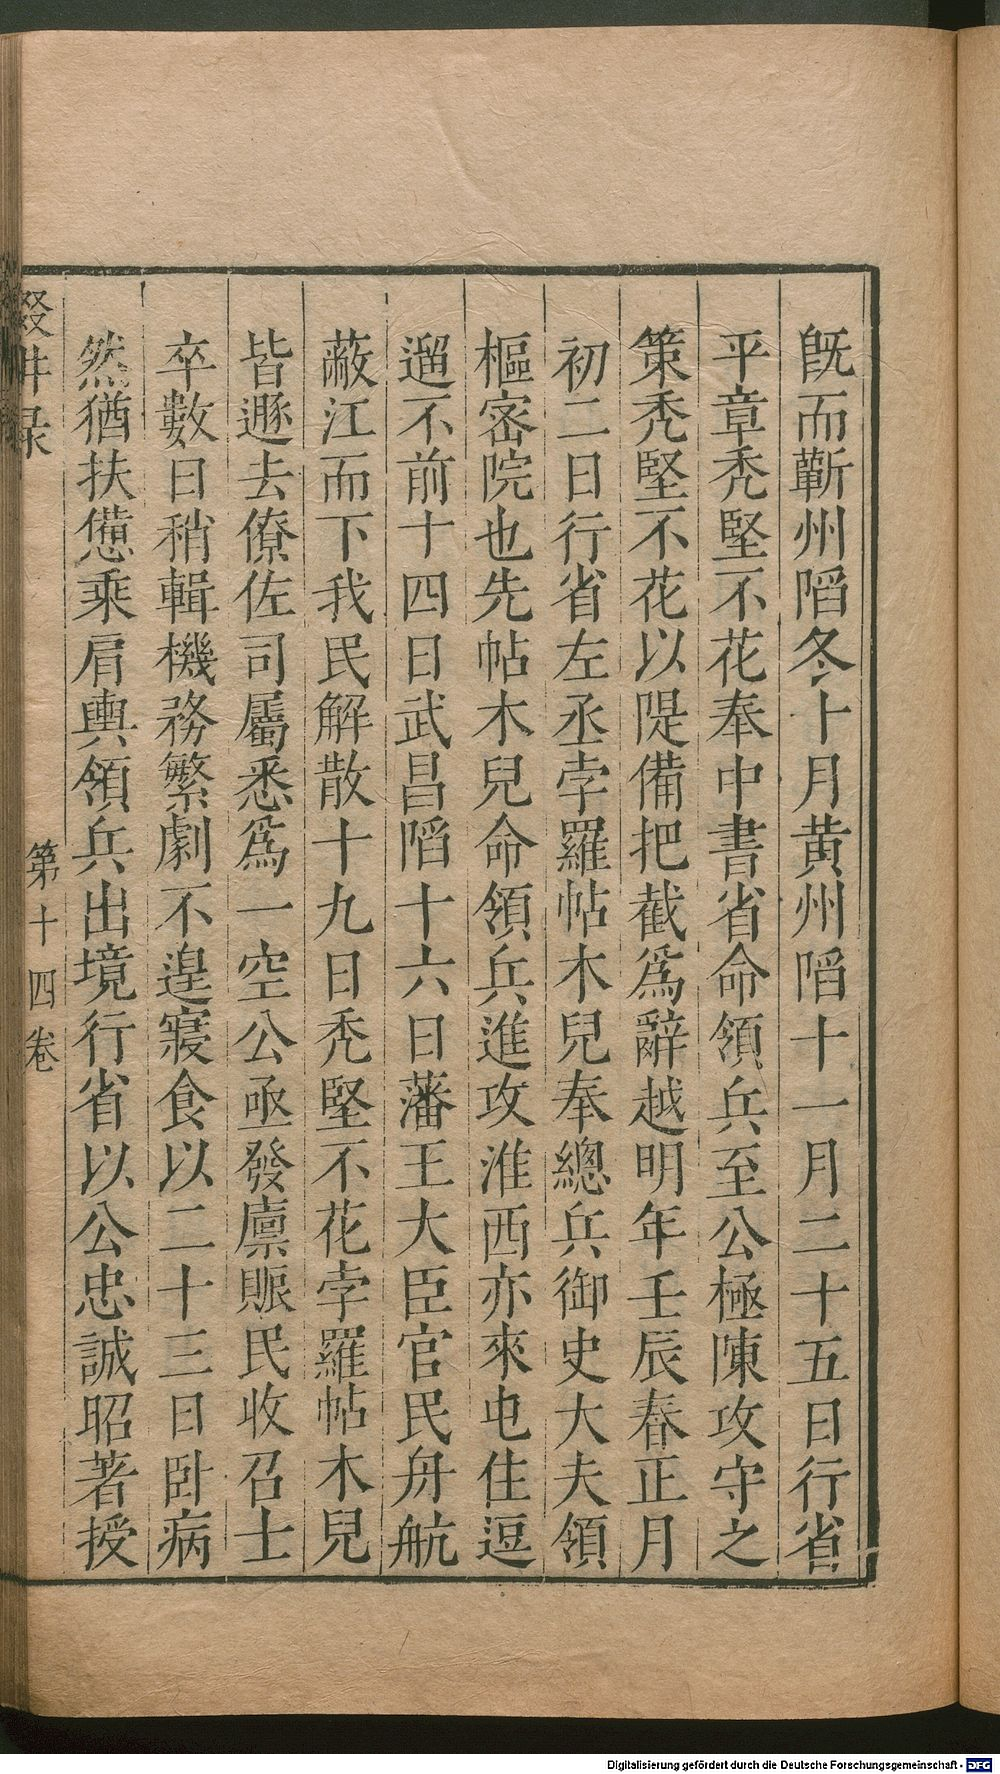 旣而蘄州䧟冬十月黄州䧟十一月二十五日行省
平章禿堅不花奉中書省命領兵至公極陳攻守之
策禿堅不花以隄備把截爲辭越明年壬辰春正月
初二日行省左丞孛羅帖木兒奉總兵御史大夫領
樞密院也先帖木兒命領兵進攻淮西亦來屯住逗
遛不前十四日武昌䧟十六日藩王大臣官民舟航
蔽江而下我民解散十九日禿堅不花孛羅帖木兒
皆遯去僚佐司屬悉爲一空公亟發廪賑民收召士
卒數日稍輯機務繁劇不遑寢食以二十三日卧病
然猶扶憊乘肩輿領兵出境行省以公忠誠昭著授
輟畊录
第十四卷
Digitalisierung gefördert durch die Deutsche Forschungsgemeinschaft - DFG